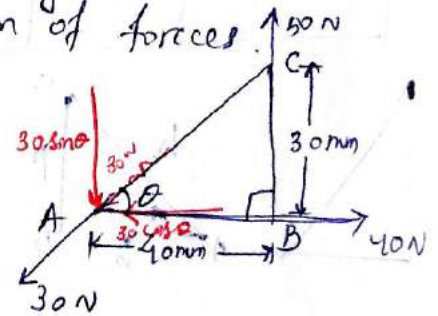 n of forces
50 N
C
30 sinθ
30 N
30 mm
θ
A
30 cosθ
B
40 N
40mm
30 N